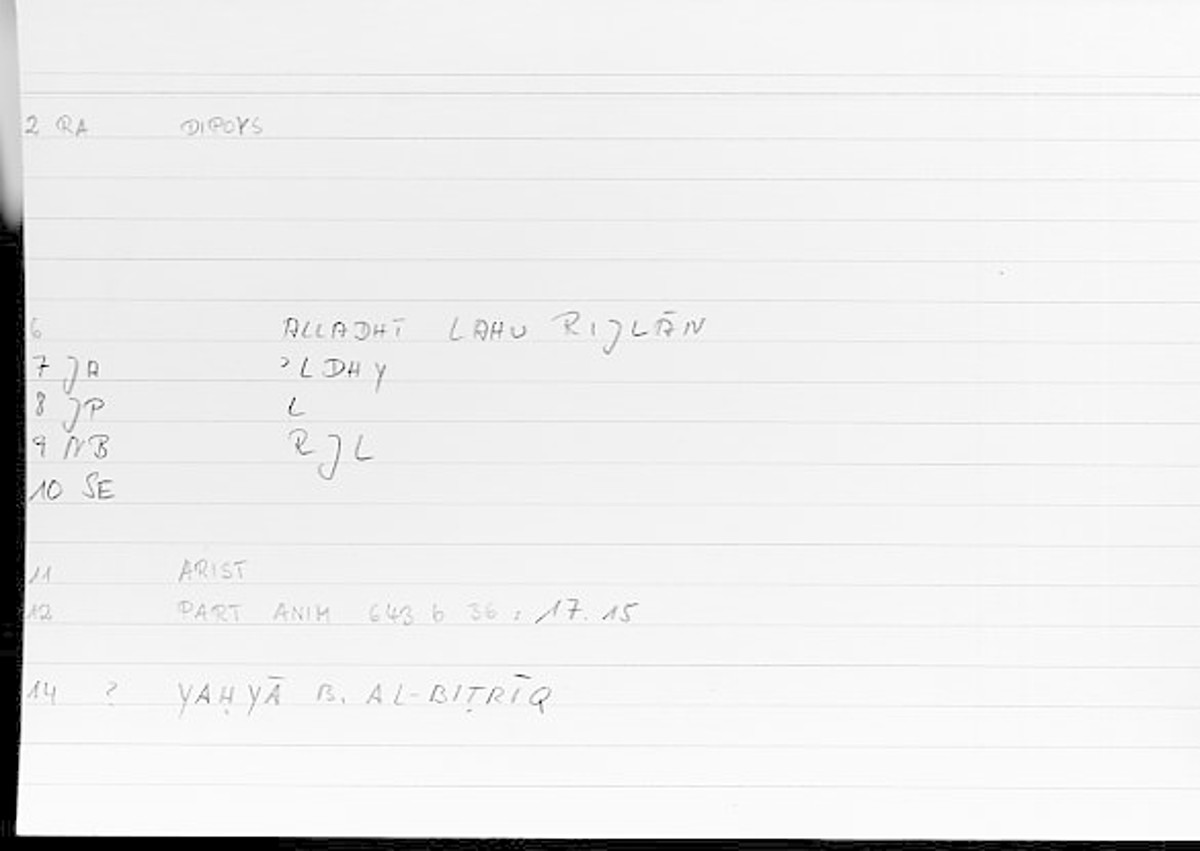 2 RA DIPOYS
6 ALLADHĪ LAHU RIJLĀN
7 JA ʾLDHY
8 JP L
9 NB RJL
10 SE
11 ARIST
12 PART ANIM 643 b 36 : 17.15
14 ? YAḤYĀ B. AL-BIṬRĪQ